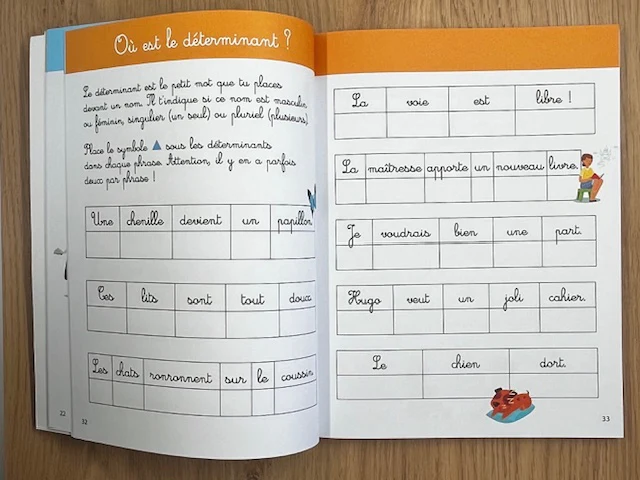 Où est le déterminant ?
Le déterminant est le petit mot que tu places
devant un nom. Il t'indique si ce nom est masculin
ou féminin, singulier (un seul) ou pluriel (plusieurs)
Place le symbole ▲ sous les déterminants
dans chaque phrase. Attention, il y en a parfois
deux par phrase !
Une chenille devient un papillon
Ces lits sont tout doux
Les chats ronronnent sur le coussin
22
32
La voie est libre !
La maîtresse apporte un nouveau livre.
Je voudrais bien une part.
Hugo veut un joli cahier.
Le chien dort.
33